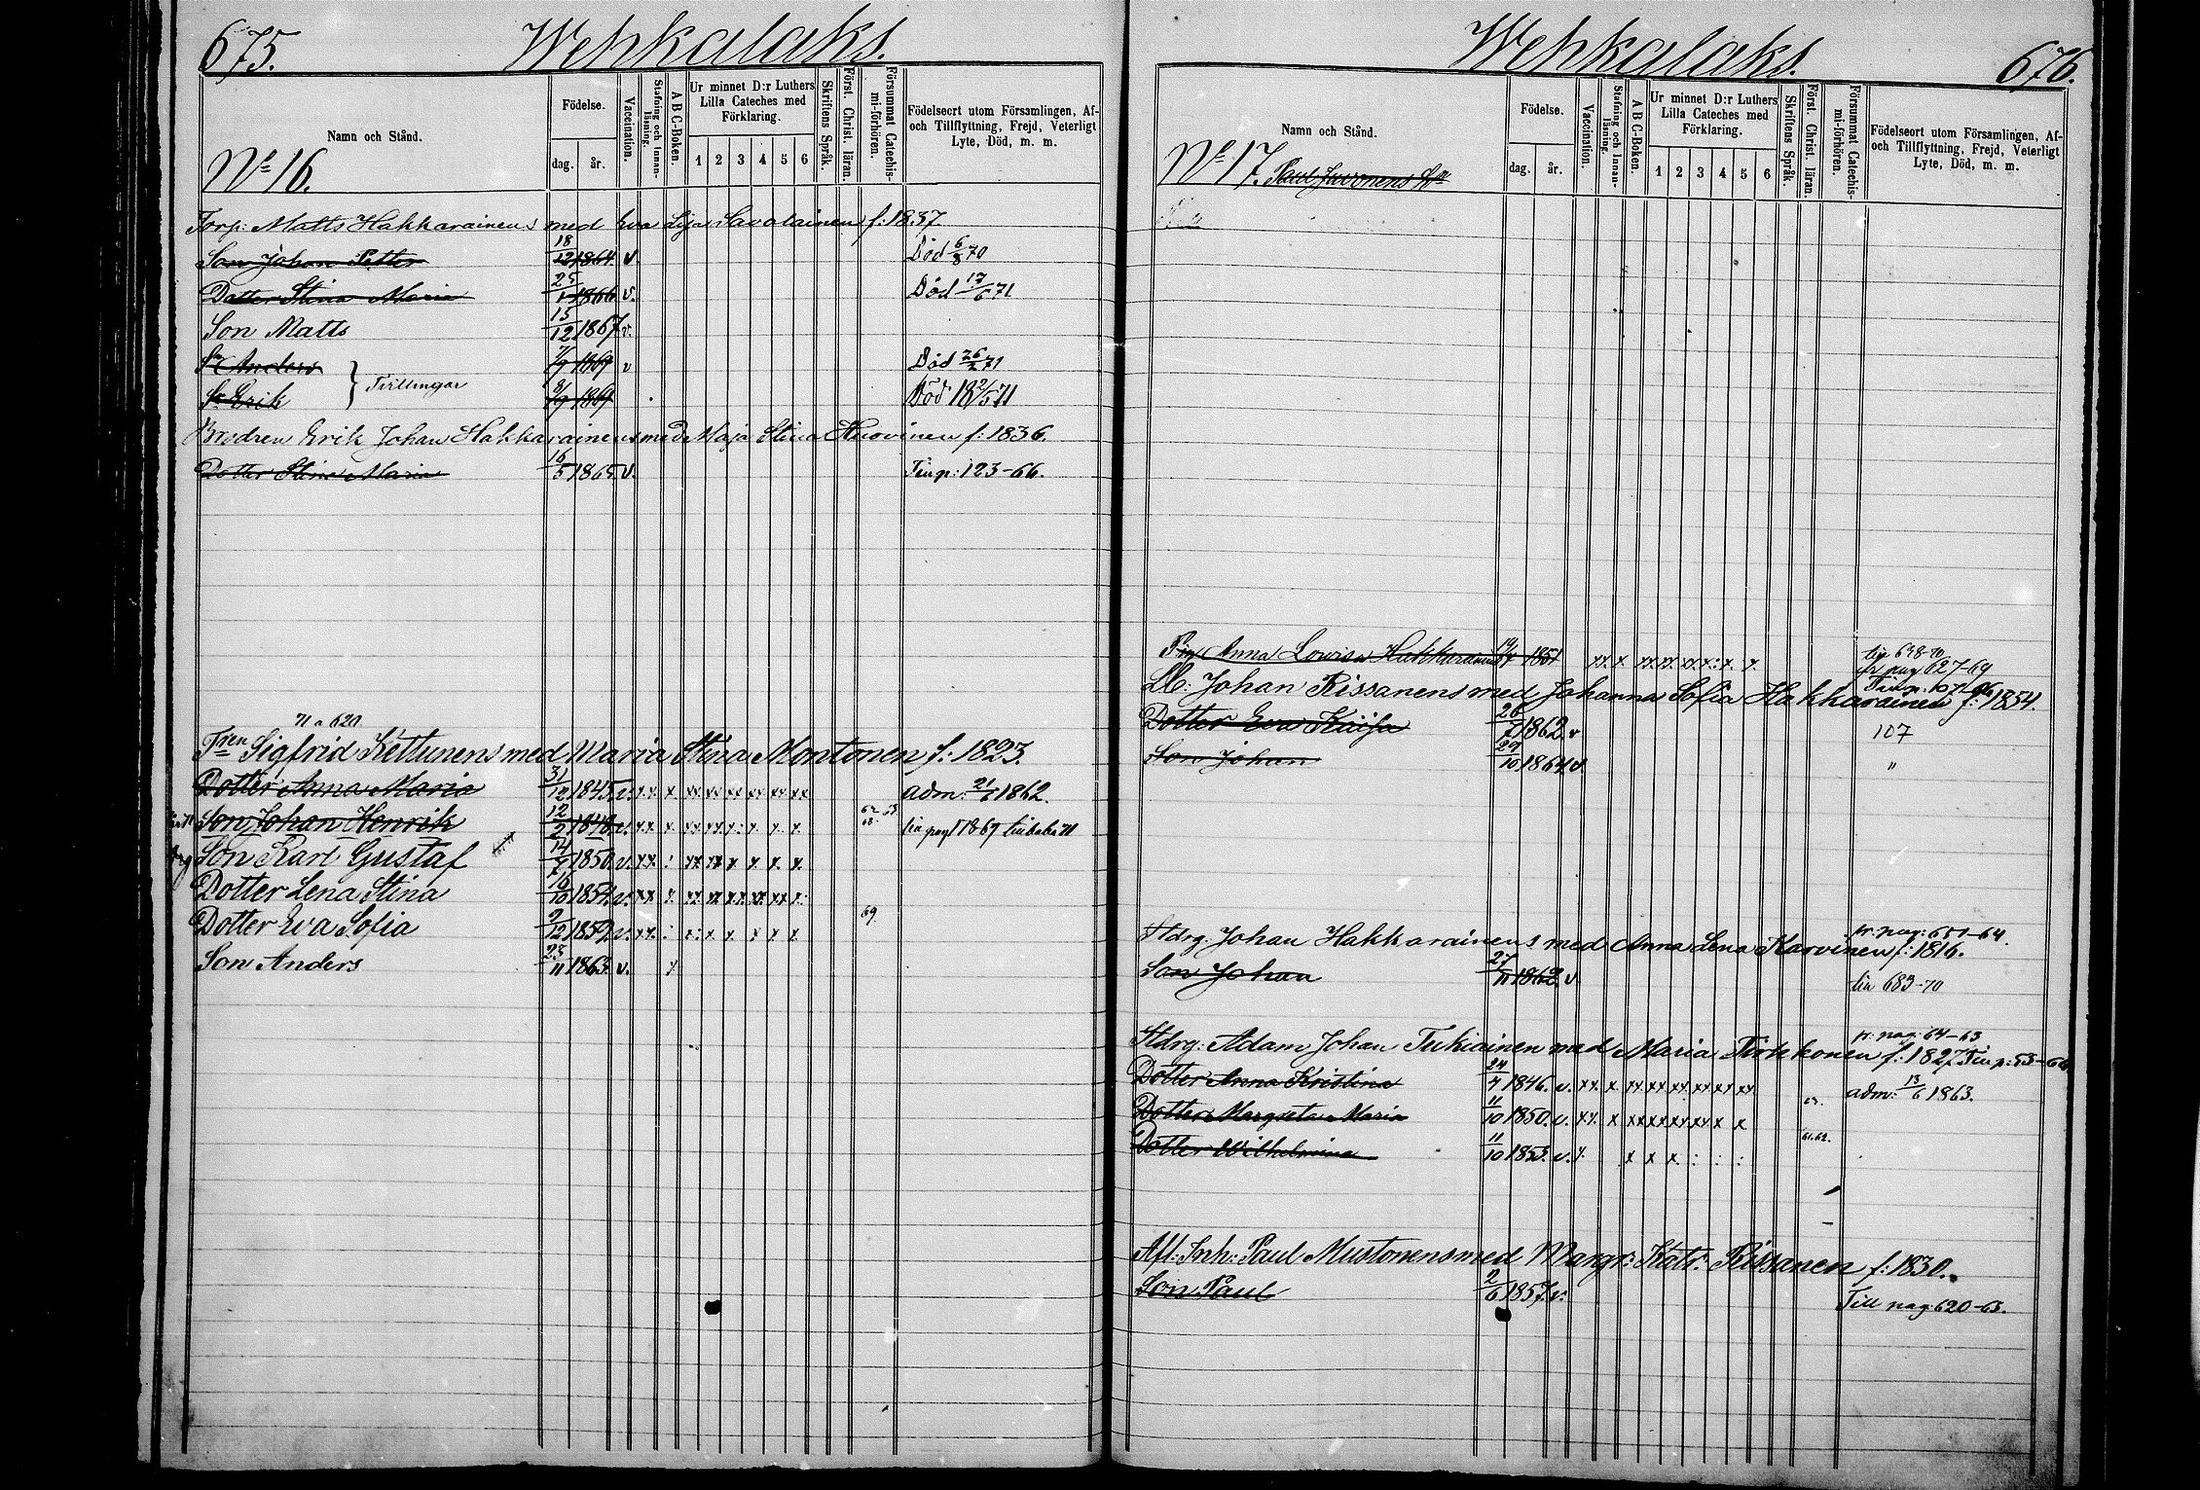 675. Wehkalaks.
Namn och Stånd.
Födelse.
dag. år.
Vaccination.
Stafning och Innanläsning.
A B C-Boken.
Ur minnet D:r Luthers Lilla Cateches med Förklaring.
1 2 3 4 5 6
Skriftens Språk.
Först. Christ. läran.
Försummat Catechismi-förhören.
Födelseort utom Församlingen, Af- och Tillflyttning, Frejd, Veterligt Lyte, Död, m. m.
No 16.
Torp: Matts Hakkarainens med Eva Lisa Savolainen f: 1837.
Son Johan Petter 18/12 1864. v. Död 6/8 70
Dotter Stina Maria 25/1 1866 v. Död 17/6 71
Son Matts 13/12 1867 v.
Sn Anders 7/9 1869 v Död 26/2 71
Tvillingar
Sn Erik 8/9 1869 Död 18 2/5 71
Brodren Erik Johan Hakkarainens med Maja Stina Knovinen f: 1836.
Dotter Stina Maria 16/5 1865 v. Tingp: 123-66.
71 a 620
Tren Sigfrid Kettunens med Maria Stina Montonen f: 1823.
Dotter Anna Maria 31/12 1845. v. adm: 21/6 1862.
Son Johan Henrik 12/2 1848 v.
Son Karl Gustaf 14/7 1850 v.
Dotter Lena Stina 16/10 1854. v.
Dotter Eva Sofia 2/12 1859. v. 69
Son Anders 23/11 1863. v.
Wehkalaks. 676.
Namn och Stånd.
Födelse.
dag. år.
Vaccination.
Stafning och Innanläsning.
A B C-Boken.
Ur minnet D:r Luthers Lilla Cateches med Förklaring.
1 2 3 4 5 6
Skriftens Språk.
Först. Christ. läran.
Försummat Catechismi-förhören.
Födelseort utom Församlingen, Af- och Tillflyttning, Frejd, Veterligt Lyte, Död, m. m.
No 17. Paul Juvonens
Pig Anna Lowisa Hakkarainen 1851 fr pag 627-69
Johan Rissanens med Johanna Sofia Hakkarainen f: 1834.
Dotter Eva Kaisa 26/7 1862. v 107
Son Johan 29/10 1864 v. "
pr. pag: 651-64.
Stdrg. Johan Hakkarainens med Anna Lena Karvinen f: 1816.
Son Johan 27/11 1862. v. lia 683-70
pr. pag: 64-63
Stdrg: Adam Johan Tukiainen med Maria Pirkkonen f: 1827.
Dotter Anna Kristina 24/4 1846. v. adm: 13/6 1863.
Dotter Margreta Maria 11/10 1850. v.
Dotter Wilhelmina 11/10 1853. v. 61.62.
Afl: Inh: Paul Mustonens med Margr: Katr: Rissanen f: 1830.
Son Paul 2/6 1857. v. Till pag: 620-63.